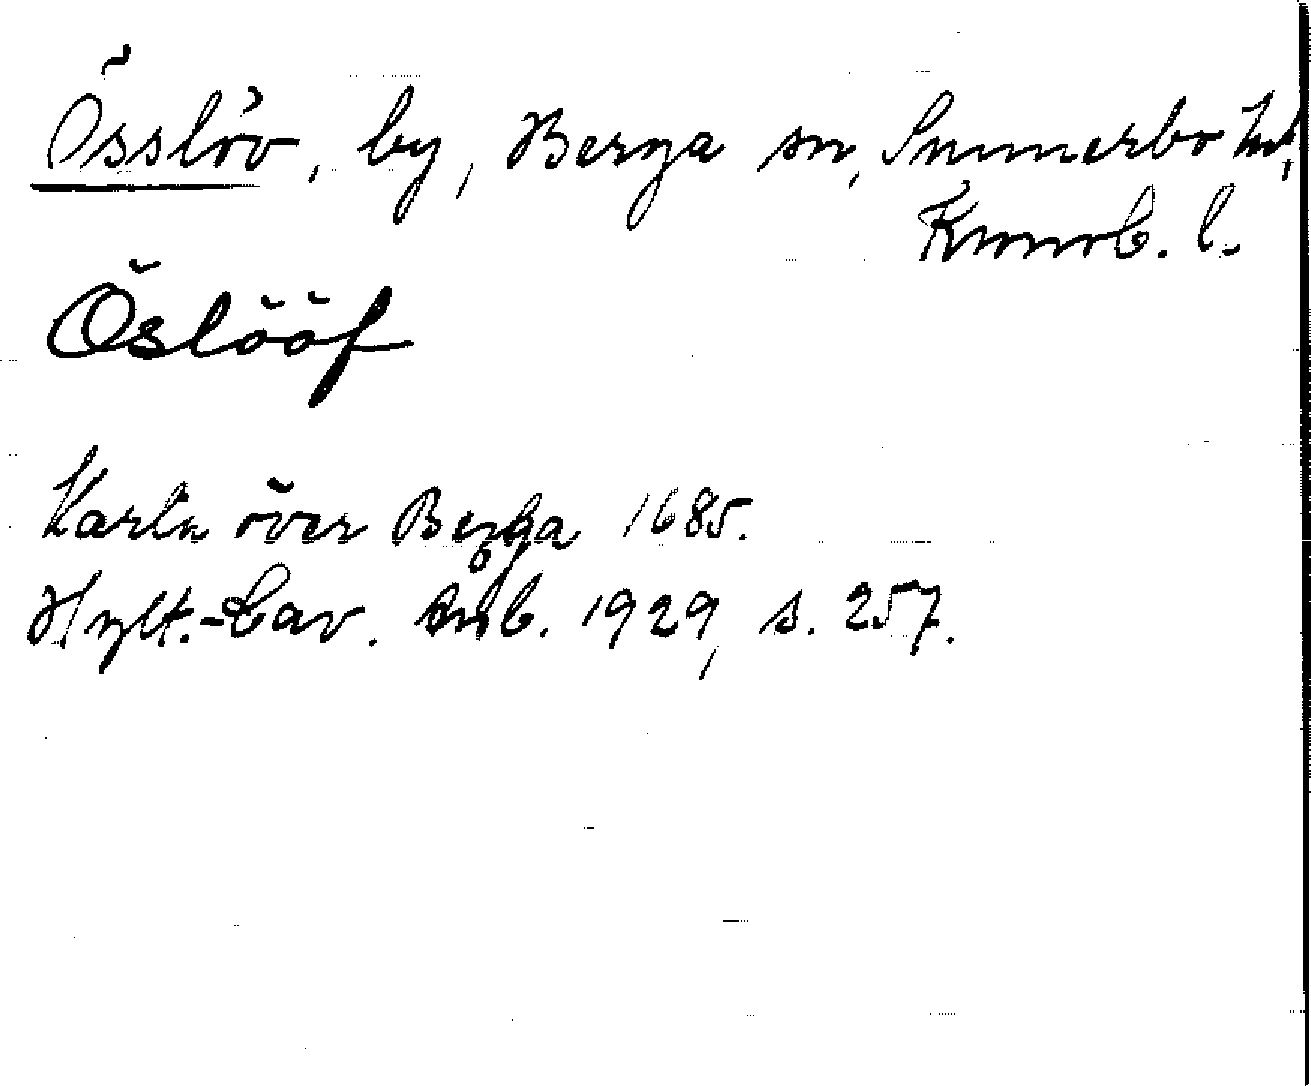 Össlöv, by, Berga sn, Sunnerbo hd,
Kronob. l.
Öslööf
Karta över Berga 1685.
Hylt.-Cav. årsb. 1929, s. 257.